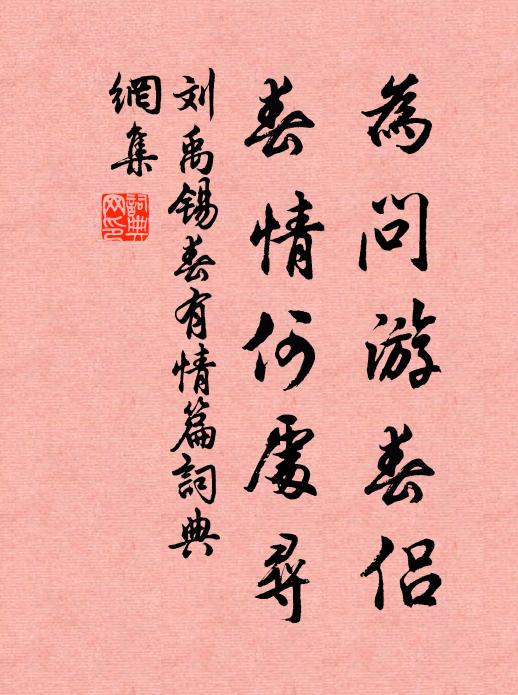 為问游春侣
春情何處尋
刘禹锡春有情篇詞典
網集
詞典
网印